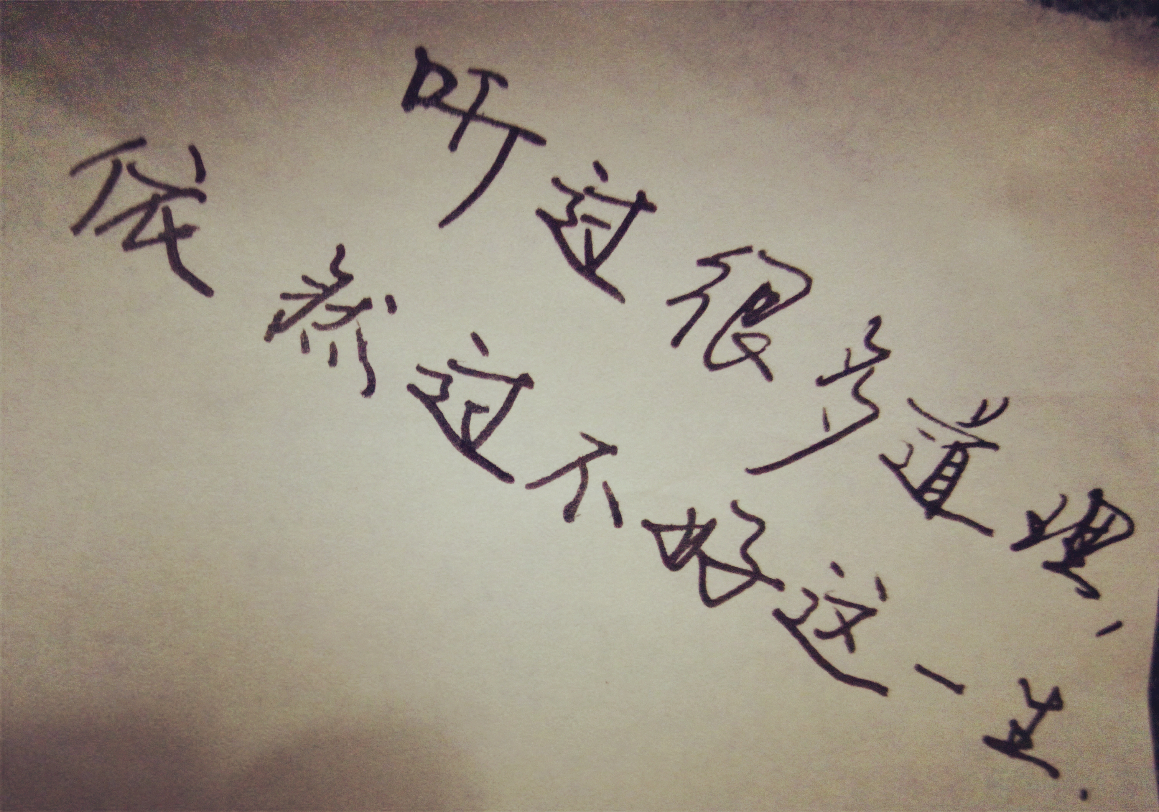 听过很多道理,
依然过不好这一生.